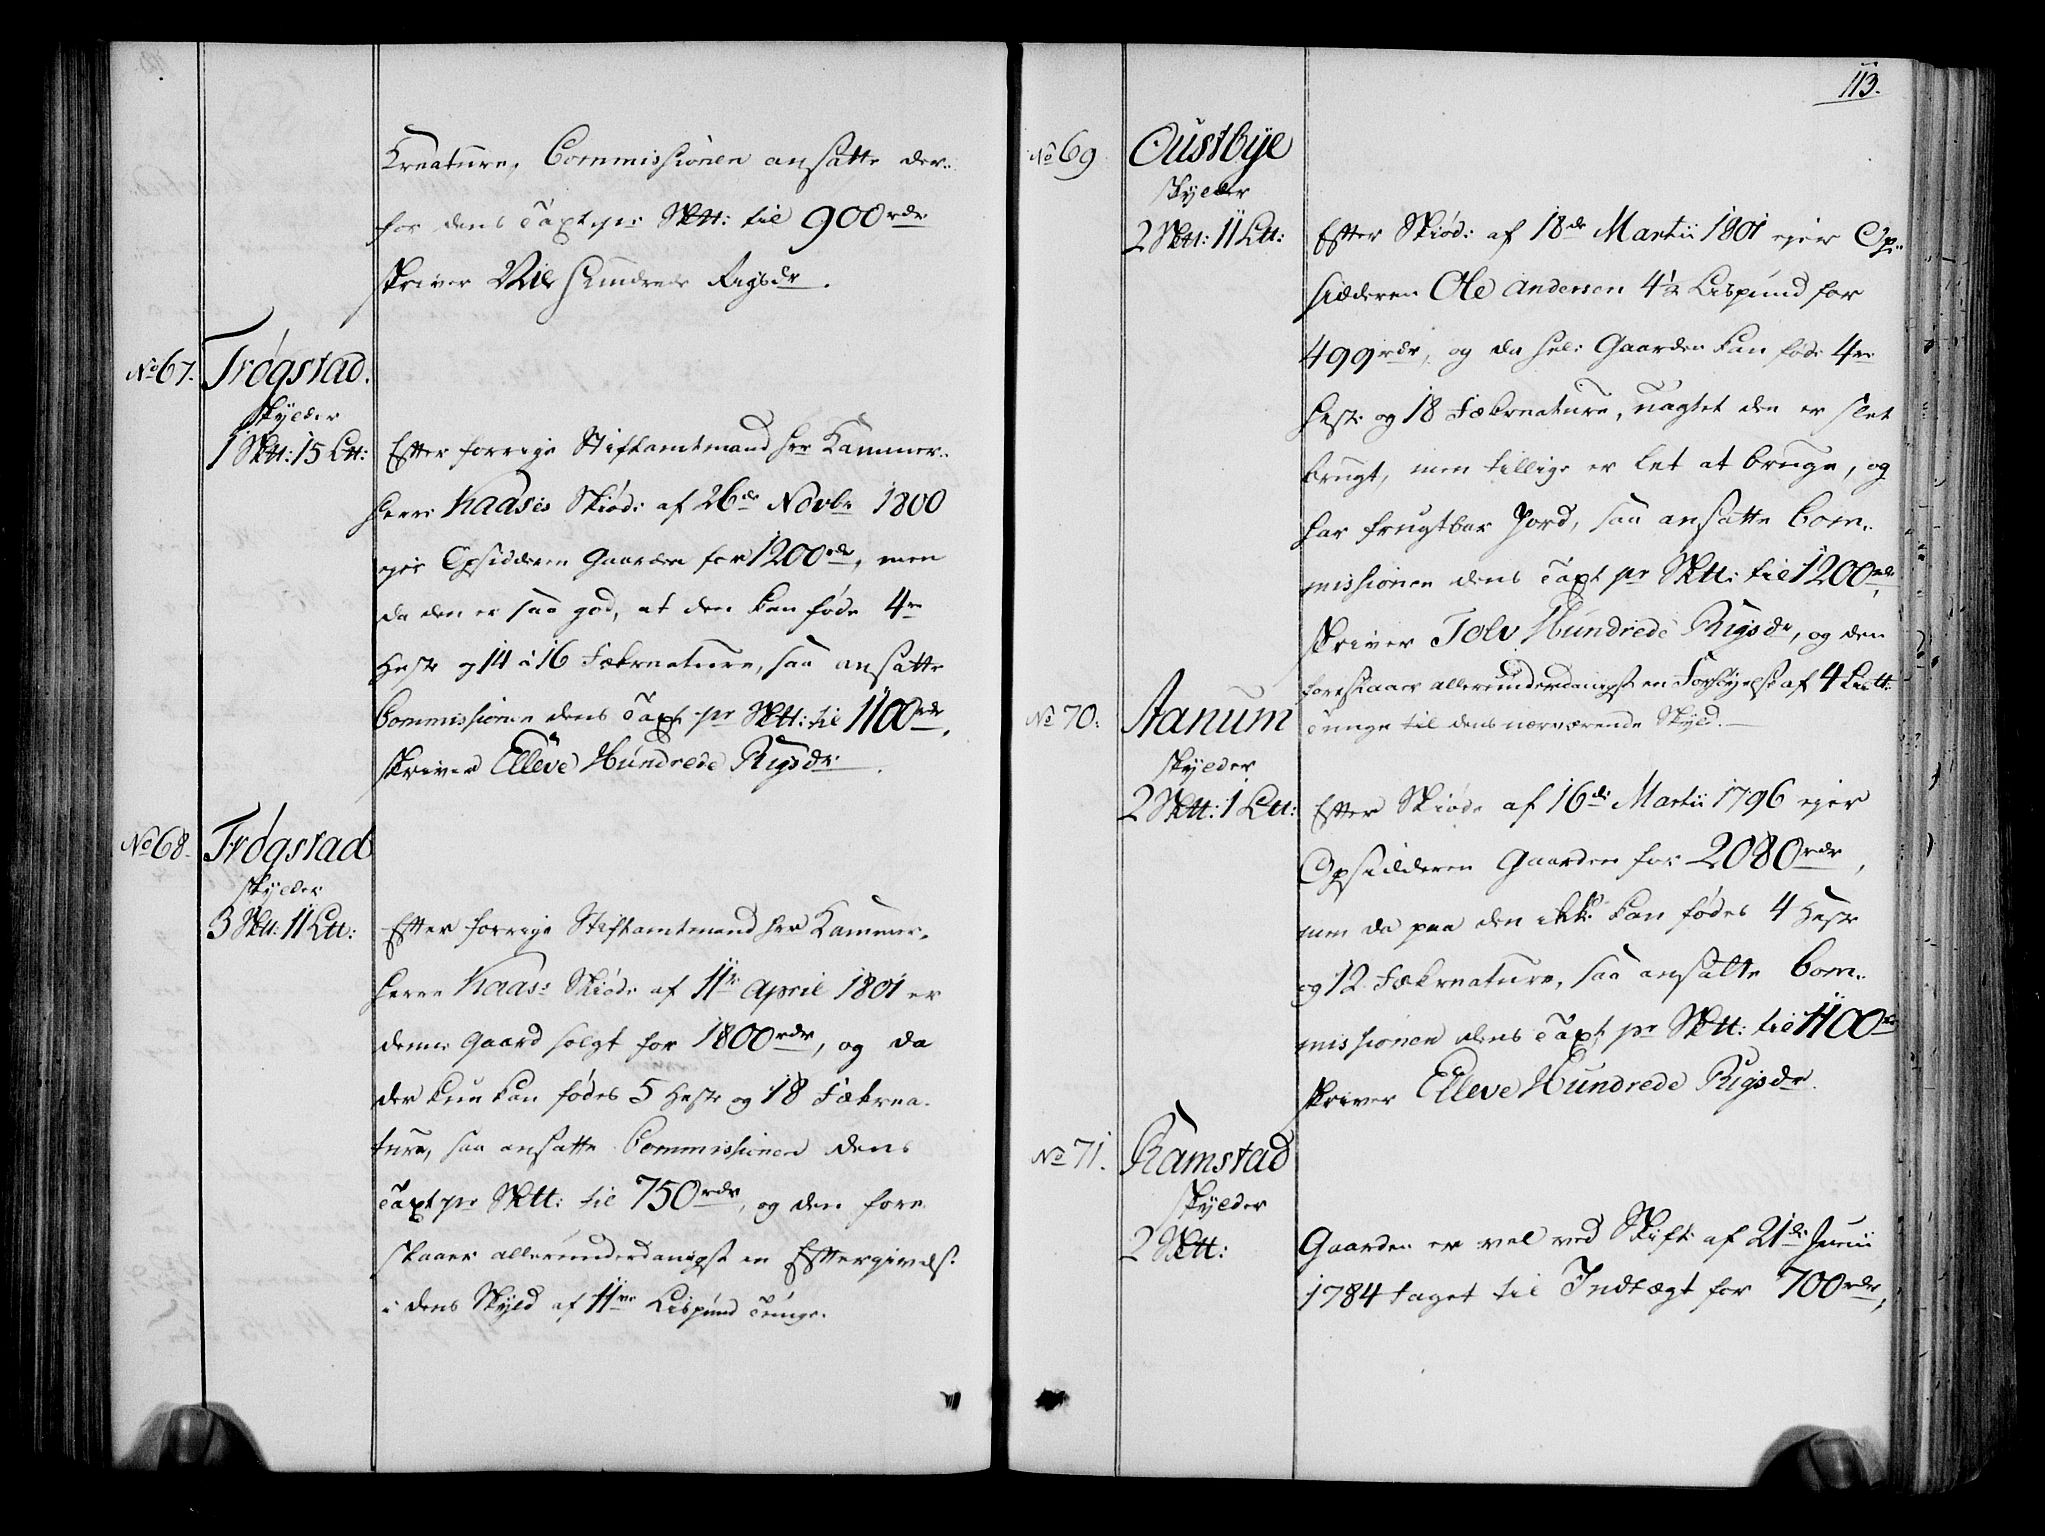 Kreature, Commissionen ansatte der-
for dens Taxt pr Sktt: til 900rdr
skriver Nie Hundrede Rigsdr.
No 67. Trøgstad.
skylder
1 Sktt: 15 Ltt:
Efter forrige Stiftamtmand Hr Kammer-
herre Kaases Skiøde af 26de Novbr 1800
ejer Opsidderen Gaarden for 1200rdr, men
da den er saa god, at den kan føde 4re
Heste og 14 à 16 Fækreature, saa ansatte
Commissionen dens Taxt pr Sktt: til 1100rdr,
skriver Elleve Hundrede Rigsdr.
No 68. Trøgstad
skylder
3 Sktt: 11 Ltt:
Efter forrige Stiftamtmand Hr Kammer-
herre Kaas: Skiøde af 11te April 1801 er
denne Gaard solgt for 1800rdr, og da
der kun kan fødes 5 Heste og 18 Fækrea-
ture, saa ansatte Commissionen dens
Taxt pr Sktt: til 750rdr, og den fore
slaaer allerunderdanigst en Eftergivelse
i dens Skyld af 11ve Lispund Tunge.
113.
No 69 Oustbye
skylder
2 Sktt: 11 Ltt:
Efter Skiøde af 18de Martii 1801 ejer Op-
sidderen Ole Andersen 4½ Lispund for
499rdr, og da hele Gaarden kan føde 4re
Heste og 18 Fækreature, uagtet den er slet
brugt, men tillige er let at bruge, og
har frugtbar Jord, saa ansatte Com-
missionen dens Taxt pr Sktt: til 1200rdr,
skriver Tolv Hundrede Rigsdr, og den
foreslaaer allerunderdanigst en Forhøyelse af 4 Ltt:
Tunge til dens nærværende Skyld.
No 70. Aanum
skylder
2 Sktt: 1 Ltt:
Efter Skiøde af 16de Martii 1796 ejer
Opsidderen Gaarden for 2080rdr,
men da paa den ikke kan fødes 4 Heste
og 12 Fækreature, saa ansatte Com-
missionen dens Taxt pr Sktt: til 1100rdr
skriver Elleve Hundrede Rigsdr.
No 71. Ramstad
skylder
2 Sktt:
Gaarden er vel ved Skifte af 21de Junii
1784 taget til Indtægt for 700rdr,